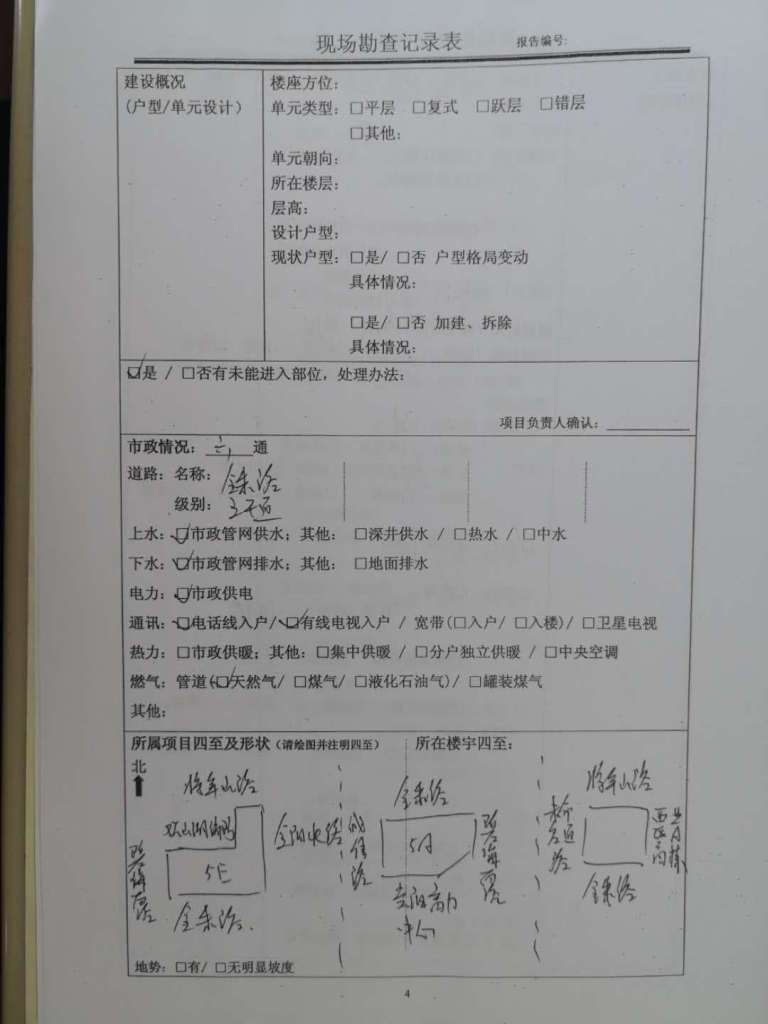 现场勘查记录表 报告编号:
建设概况
(户型/单元设计)
楼座方位:
单元类型: □平层 □复式 □跃层 □错层
□其他:
单元朝向:
所在楼层:
层高:
设计户型:
现状户型: □是/ □否 户型格局变动
具体情况:
□是/ □否 加建、拆除
具体情况:
☑是 / □否有未能进入部位, 处理办法:
项目负责人确认:
市政情况: 六 通
道路: 名称: 金朱路
级别: 主干道
上水: ☑市政管网供水; 其他: □深井供水 / □热水 / □中水
下水: ☑市政管网排水; 其他: □地面排水
电力: ☑市政供电
通讯: ☑电话线入户/ ☑有线电视入户 / 宽带(□入户/ □入楼)/ □卫星电视
热力: □市政供暖; 其他: □集中供暖 / □分户独立供暖 / □中央空调
燃气: 管道(☑天然气/ □煤气/ □液化石油气)/ □罐装煤气
其他:
所属项目四至及形状 (请绘图并注明四至) 所在楼宇四至:
北
将军山路
金朱路
将军山路
5E
5A
金朱路
中心
金朱路
地势: □有/ □无明显坡度
4